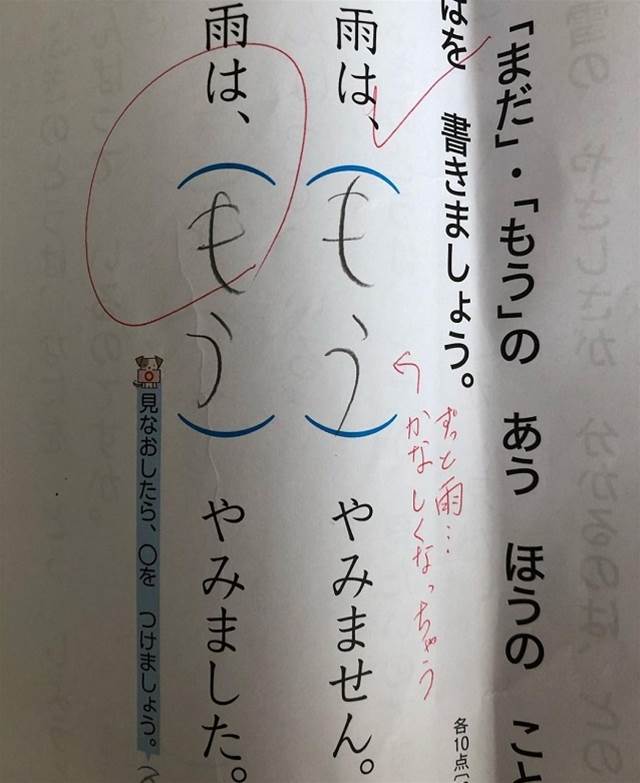 「まだ」・「もう」の あう ほうの こと
ばを 書きましょう。
各10点
ずっと雨…
かなしくなっちゃう
雨は、(もう)やみません。
雨は、(もう)やみました。
見なおしたら、○を つけましょう。